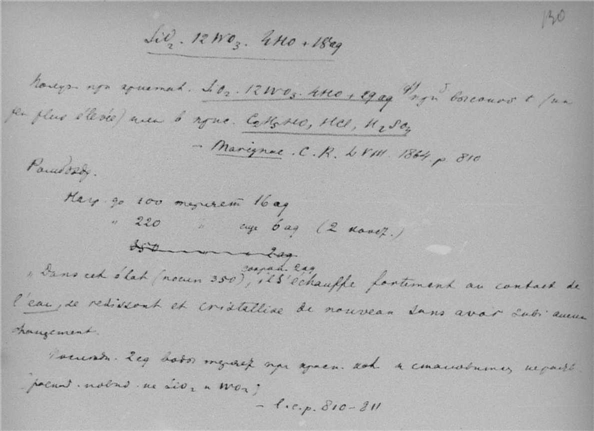 130
SiO₂ . 12 WO₃ . 4HO + 18aq
Получ. при кристал. SiO₂ . 12WO₃ . 4HO + 29aq при высокой t (un
peu plus élevée) или в прис. C₂H₅HO, HCl, H₂SO₄
— Marignac . C. R. LVIII 1864 p 810
Ромбоэдр.
Нагр до 100 теряет 16 aq
" 220 " еще 6 aq (2
350 2aq
2aq
"Dans cet état (350), il s'échauffe fortement au contact de
l'eau, se redissout et cristallise de nouveau sans avoir subi aucun
changement.
Последн. 2aq воды теряет при и становится
SiO₂ и WO₃;
— l. c. p. 810–811